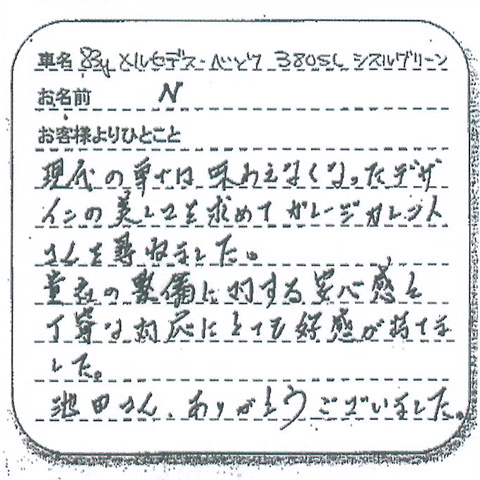 車名 83y メルセデス・ベンツ 380SL シスルグリーン
お名前 N
お客様よりひとこと
現代の車では味わえなくなったデザ
インの美しさを求めてガレージカレント
さんを尋ねました。
車両の整備に対する安心感と
丁寧な対応にとても好感が持てま
した。
池田さん、ありがとうございました。